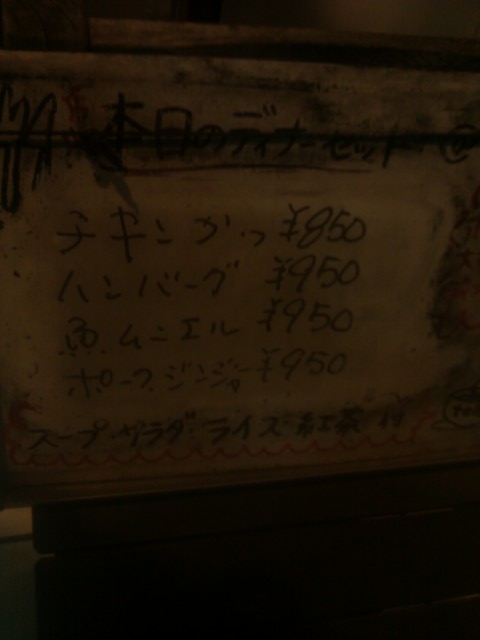 本日のディナーセット
チキンかつ ¥850
ハンバーグ ¥950
魚ムニエル ¥950
ポークジンジャ ¥950
スープ・サラダ・ライス 紅茶付